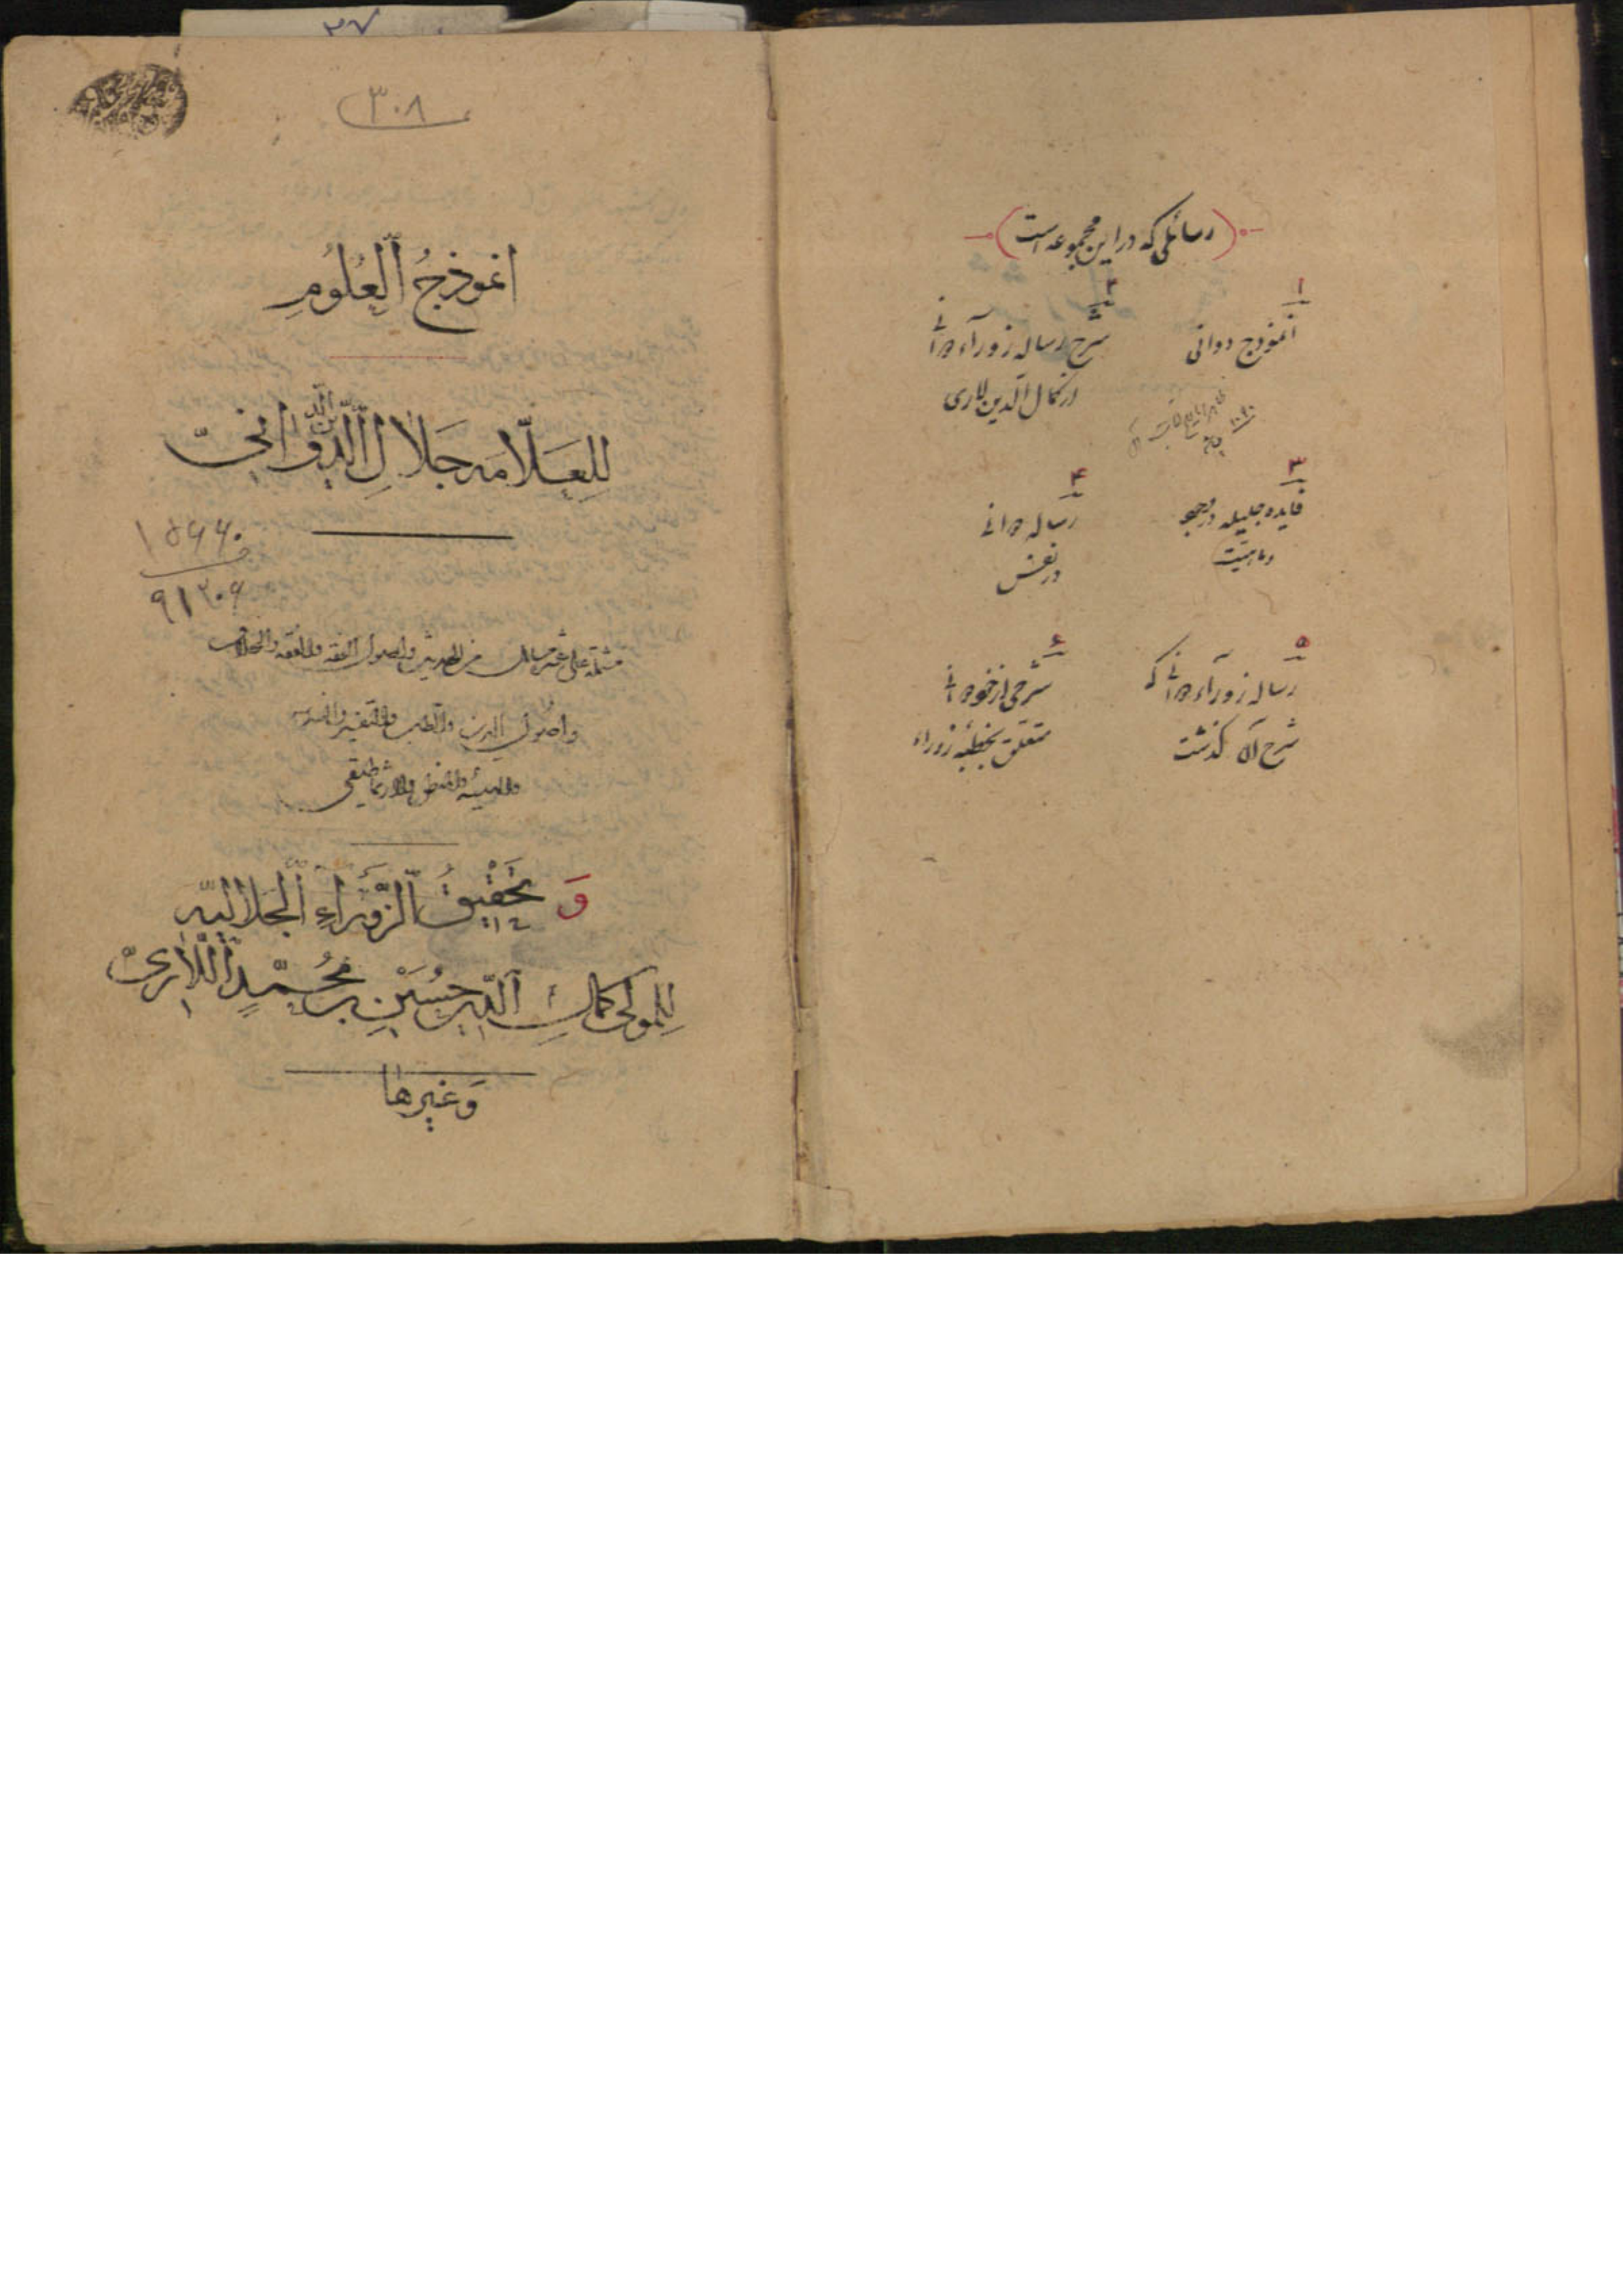 (رسائلی که در این مجموعه است)
۱
انموذج دوانی
۲
شرح رساله زورآء دوانی
از کمال الدین لاری
۱۰۹۰
۳
فایده جلیله در وجو
و ماهیت
۴
رساله دوانی
در نفس
۵
رساله زورآء دوانی که
شرح آن گذشت
۶
شرحی از خود دوانی
متعلق بخطبه زوراء
۳۷
۳۰۸
انموذجُ العُلُومِ
لِلعَلّامه جَلالِ الدّین الدَّوانیّ
۱۵۹۴۰
۹۱۳۰۶
مشتملة علی عشر مسائل من الحدیث واصول الفقه والفقه والخلاف
واصول الدین والطب والتفسیر والهندسه
والهیئه والمنطق والارثماطیقی
وَ تَحقیقُ الزَّوراءِ الجَلالیّه
لِلمَولی کمالِ الدّین حُسَینِ بن مُحَمَّدٍ اللّاریّ
وَغیرها